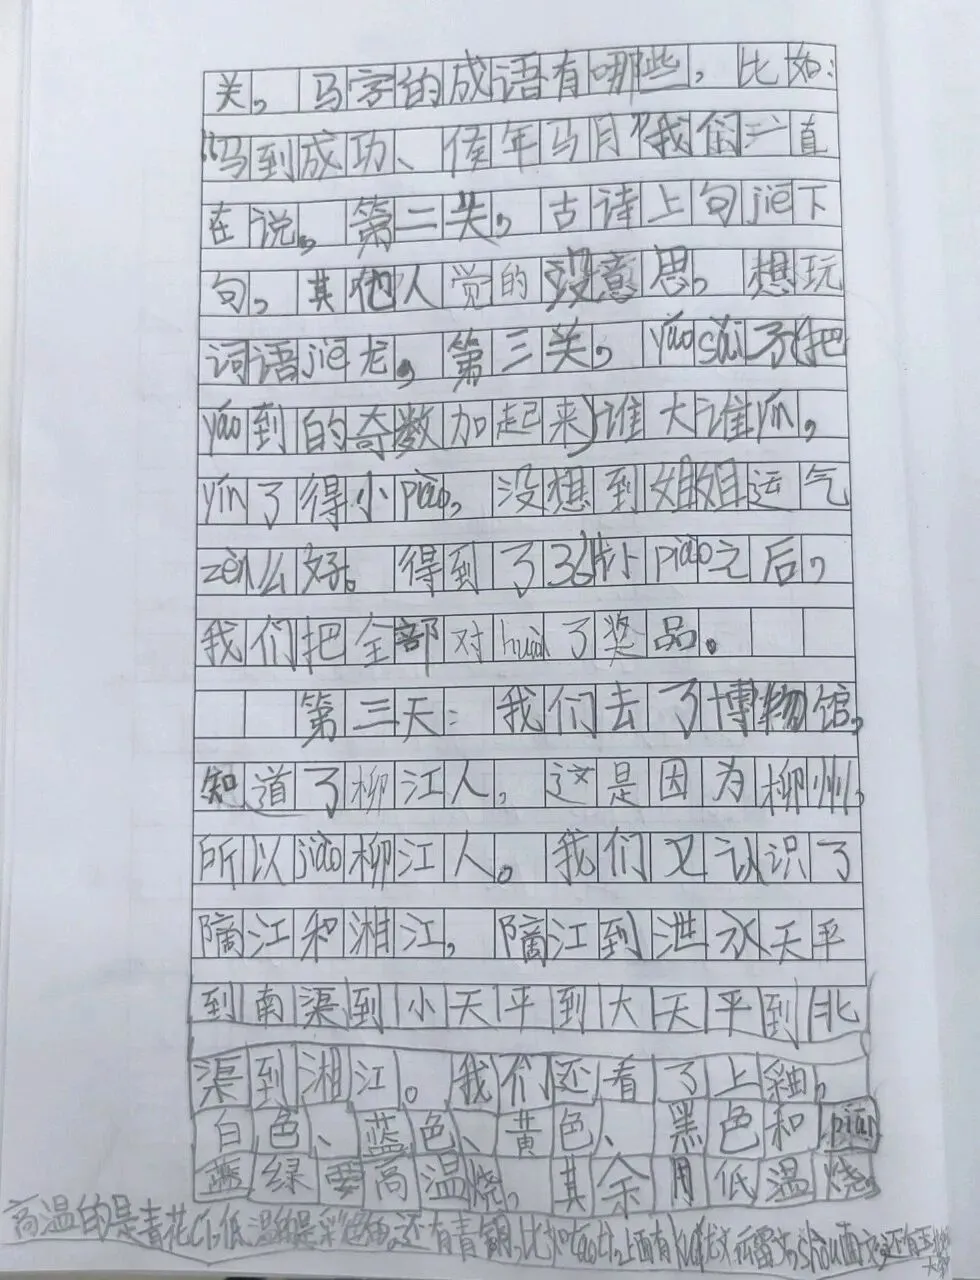 关，马字的成语有哪些，比如：
“马到成功、侯年马月”我们一直
在说，第二关，古诗上句jiē下
句，其他人觉的没意思，想玩
词语jiē龙，第三关，yáosǎi子(把
yáo到的奇数加起来)谁大谁yín，
yín了得小piào，没想到姐姐运气
zèn么好。得到了36片小piào之后，
我们把全部对huàn了奖品。
第三天：我们去了博物馆，
知道了柳江人，这是因为柳州，
所以jiào柳江人。我们又认识了
漓江和湘江，漓江到泄水天平
到南渠到小天平到大天平到北
渠到湘江。我们还看了上釉，
白色、蓝色、黄色、黑色和piān
蓝绿要高温烧，其余用低温烧，
高温的是青花瓷，低温的是彩色釉，还有青铜，比如 上面有 文 雷文，shòu面文 还有